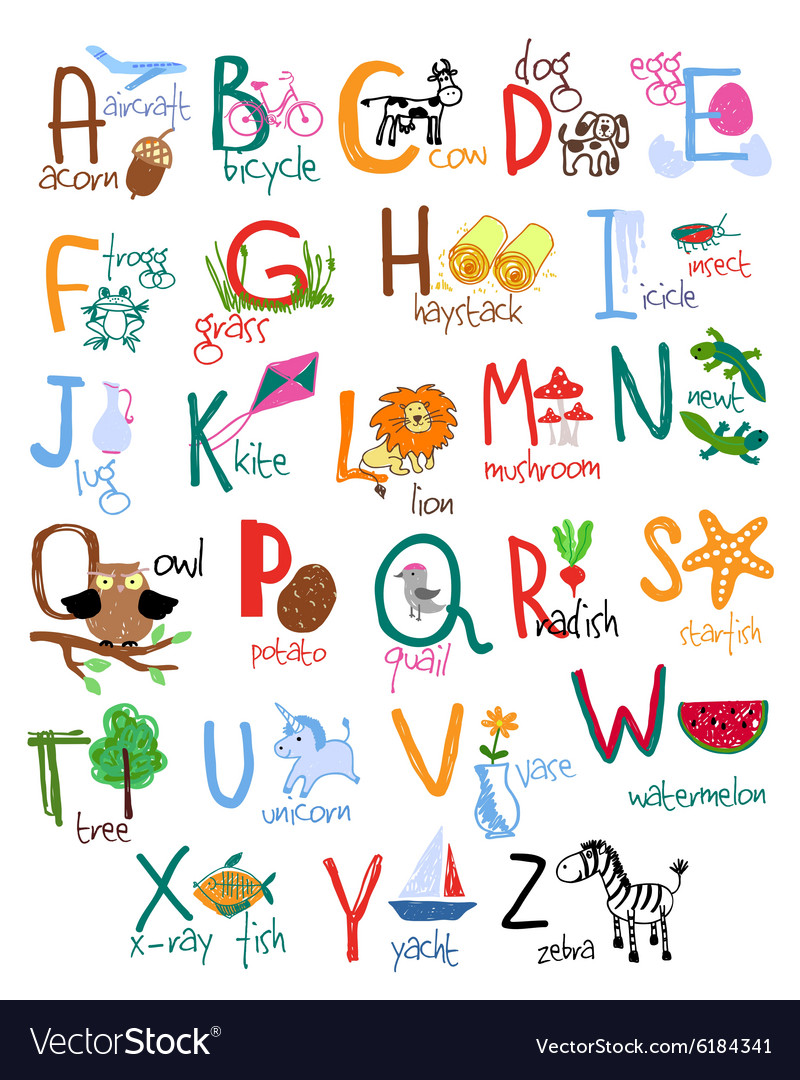 A aircraft acorn
B bicycle
C cow
D dog
E egg
F frogg
G grass
H haystack
I icicle insect
J lug
K kite
L lion
M mushroom
N newt
O owl
P potato
Q quail
R radish
S starfish
T tree
U unicorn
V vase
W watermelon
X x-ray fish
Y yacht
Z zebra
VectorStock® VectorStock.com/6184341